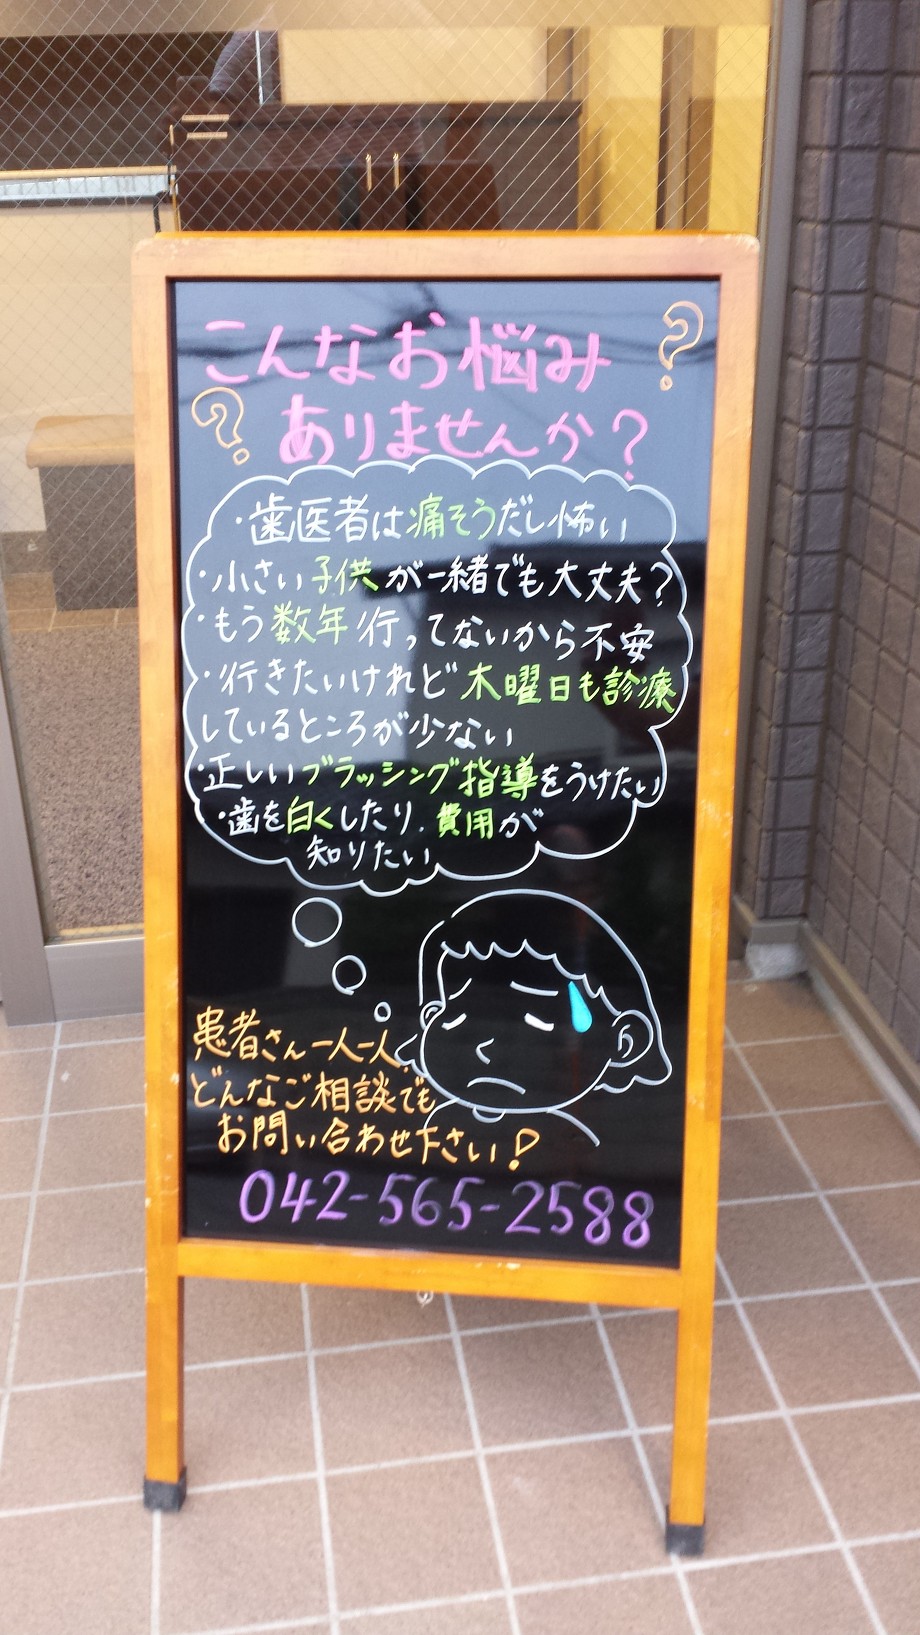 こんなお悩み
ありませんか？
・歯医者は痛そうだし怖い
・小さい子供が一緒でも大丈夫？
・もう数年行ってないから不安
・行きたいけれど木曜日も診療
しているところが少ない
・正しいブラッシング指導をうけたい
・歯を白くしたり、費用が
知りたい
患者さん一人一人、
どんなご相談でも
お問い合わせ下さい！
042-565-2588